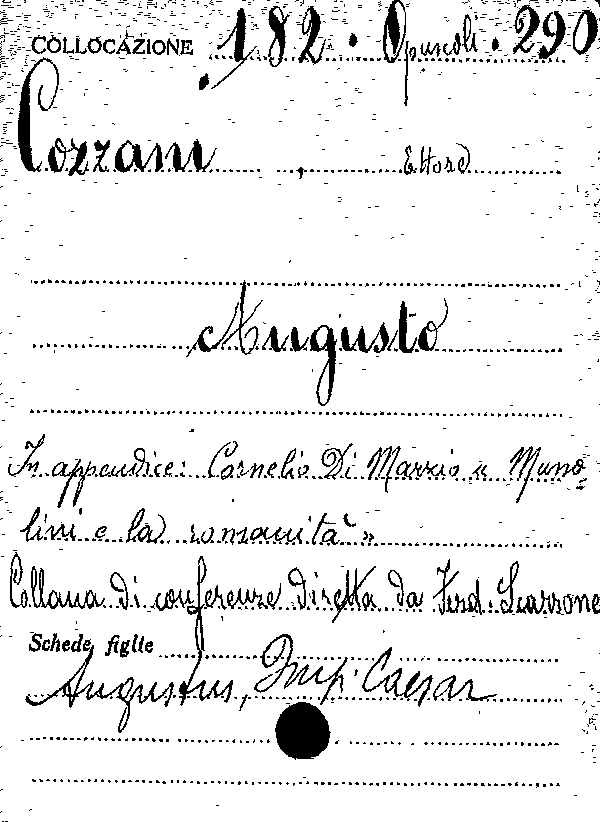 COLLOCAZIONE 182. Opuscoli. 290
Cozzani, Ettore
Augusto
In appendice: Cornelio Di Marzio "Musso=
lini e la romanità"
Collana di conferenze diretta da Ferd. Scarrone
Schede figlie
Augustus, Imp. Caesar